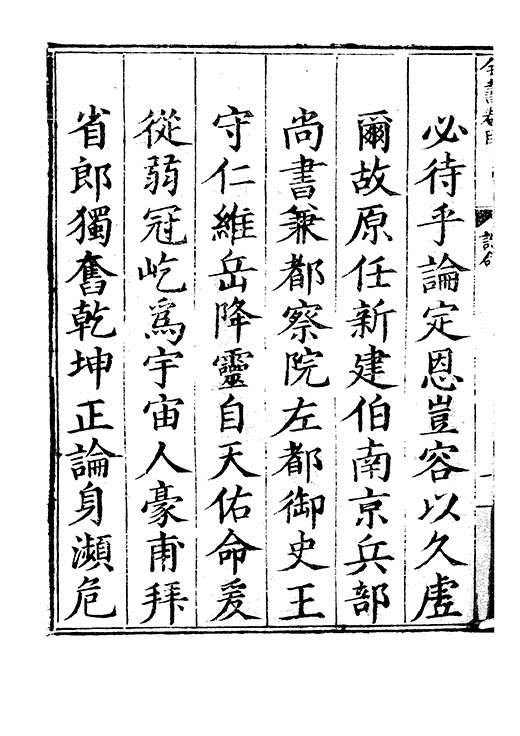 必待乎論定恩豈容以久虛
爾故原任新建伯南京兵部
尚書兼都察院左都御史王
守仁維岳降靈自天佑命爰
從弱冠屹爲宇宙人豪甫拜
省郎獨奮乾坤正論身瀕危